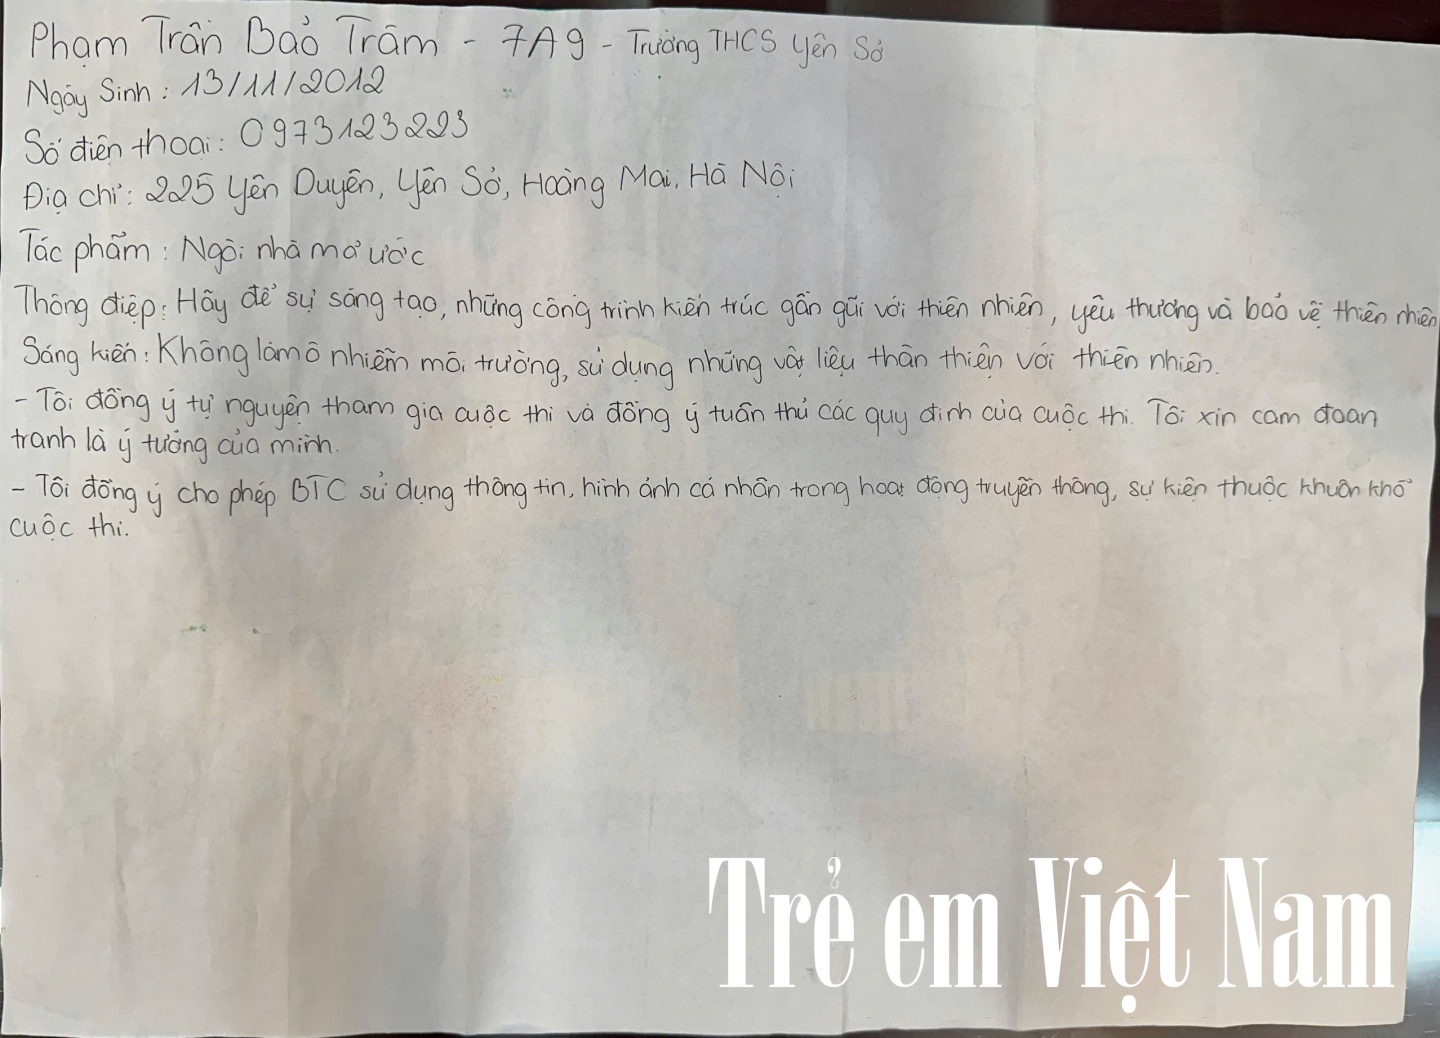 Phạm Trần Bảo Trâm - 7A9 - Trường THCS Yên Sở
Ngày Sinh : 13/11/2012
Số điện thoại : 0973123223
Địa chỉ : 225 Yên Duyên, Yên Sở, Hoàng Mai, Hà Nội
Tác phẩm : Ngôi nhà mơ ước
Thông điệp : Hãy để sự sáng tạo, những công trình kiến trúc gần gũi với thiên nhiên, yêu thương và bảo vệ thiên nhiên
Sáng kiến : Không làm ô nhiễm môi trường, sử dụng những vật liệu thân thiện với thiên nhiên.
- Tôi đồng ý tự nguyện tham gia cuộc thi và đồng ý tuân thủ các quy định của cuộc thi. Tôi xin cam đoan
tranh là ý tưởng của mình.
- Tôi đồng ý cho phép BTC sử dụng thông tin, hình ảnh cá nhân trong hoạt động truyền thông, sự kiện thuộc khuôn khổ
cuộc thi.
Trẻ em Việt Nam